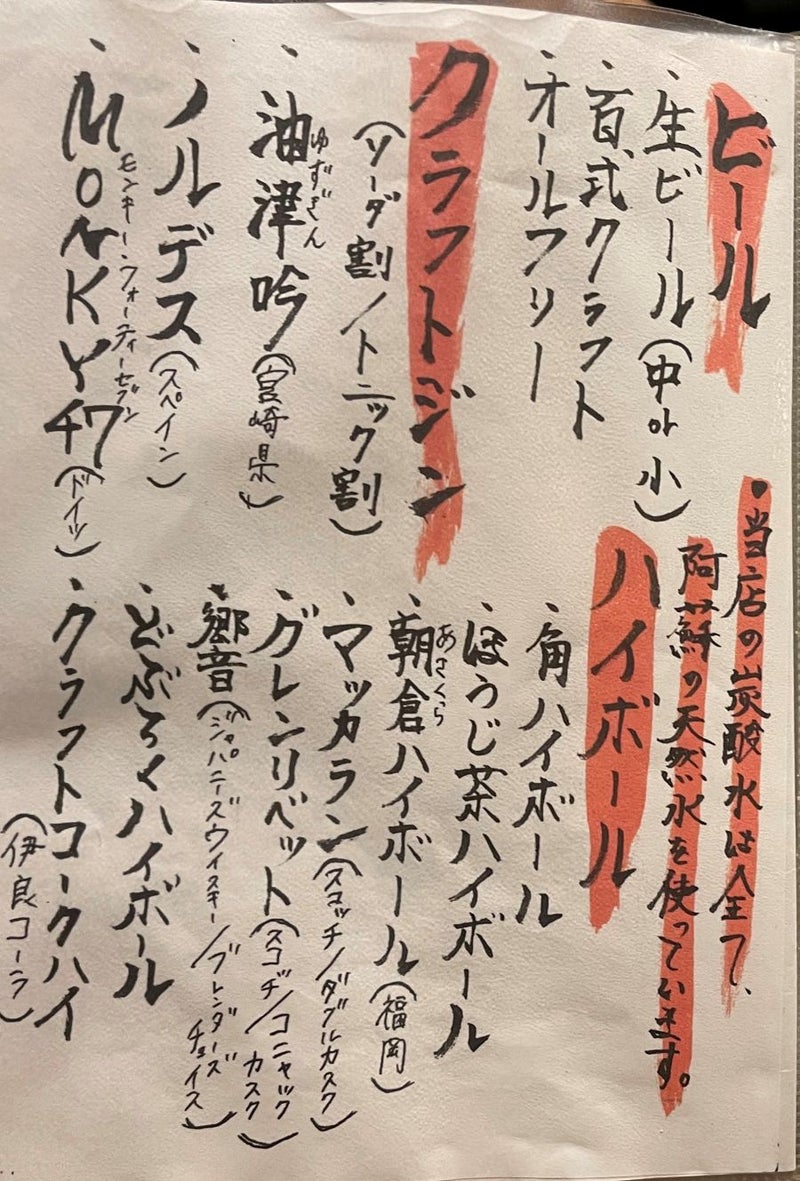 ビール
・生ビール(中or小)
・百式クラフト
・オールフリー
クラフトジン
(ソーダ割/トニック割)
・油津吟(宮崎県)
ゆずぎん
・ノルデス(スペイン)
・MONKY47(ドイツ)
モンキーフォーティーセブン
・当店の炭酸水は全て、
阿蘇の天然水を使っています。
ハイボール
・角ハイボール
・ほうじ茶ハイボール
・朝倉ハイボール(福岡)
あさくら
・マッカラン(スコッチ/ダブルカスク)
・グレンリベット(スコッチ/コニャックカスク)
・響音(ジャパニーズウイスキー/ブレンダーズチョイス)
・どぶろくハイボール
・クラフトコークハイ
(伊良コーラ)